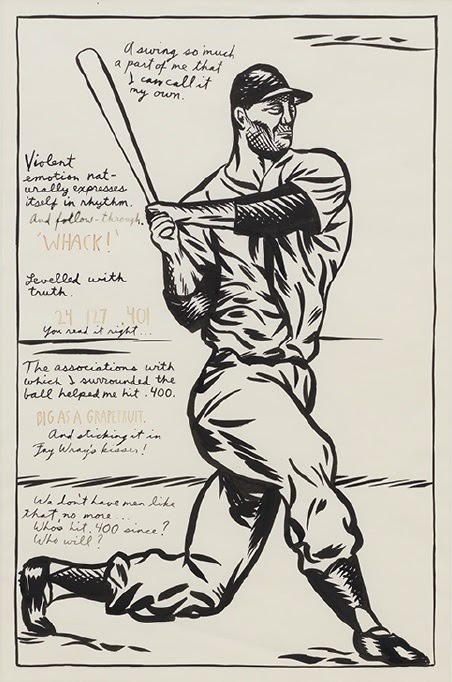 A swing so much
a part of me that
I can call it
my own.
Violent
emotion nat-
urally expresses
itself in rhythm.
And follow-through.
'WHACK!'
Levelled with
truth.
24 127 .401
You read it right...
The associations with
which I surrounded the
ball helped me hit .400.
BIG AS A GRAPEFRUIT.
And sticking it in
Fay Wray's kisser!
We don't have men like
that, no more...
Who's hit .400 since?
Who will?